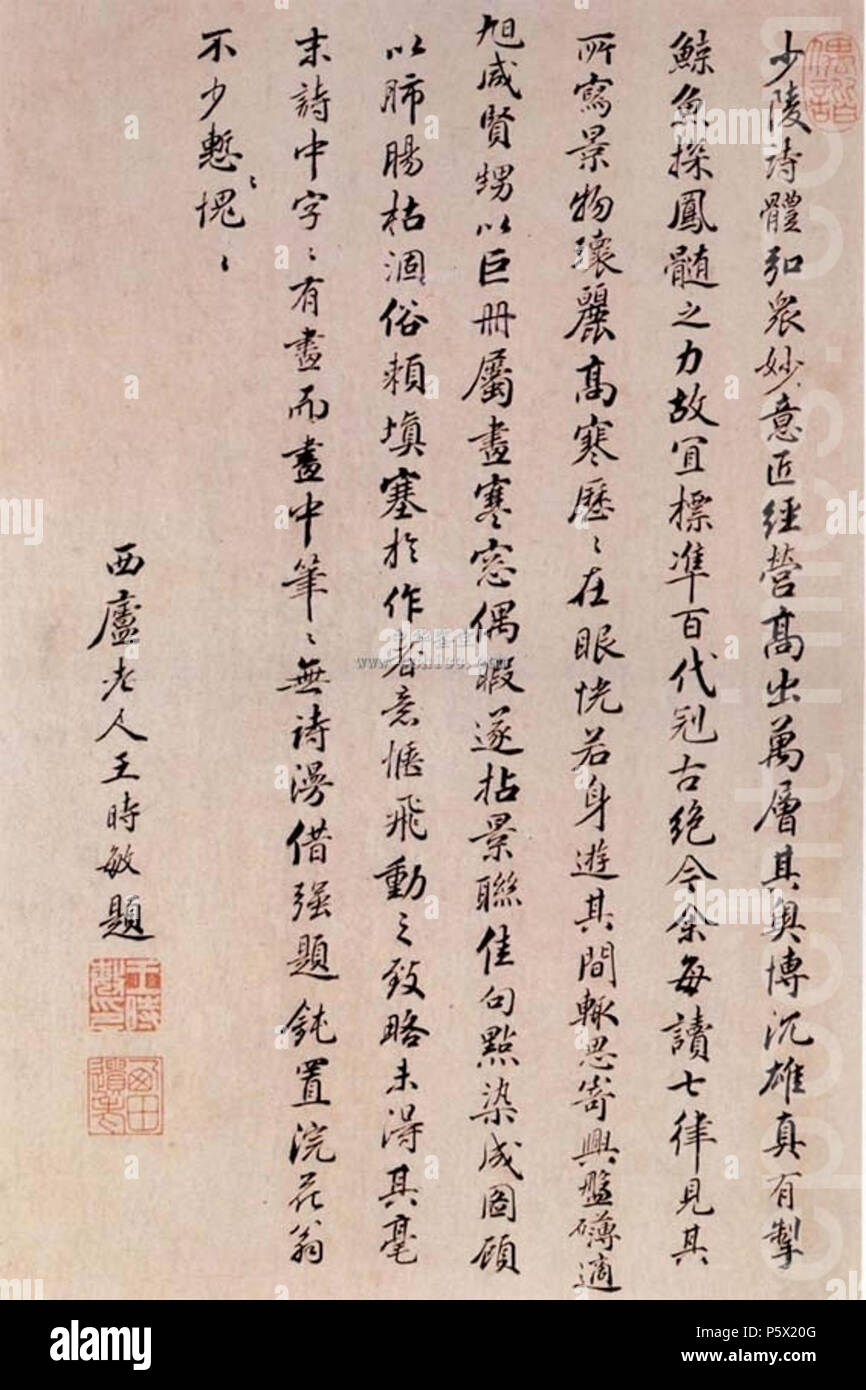 少陵詩體弘眾妙意匠經營高出萬層其奧博沉雄真有掣
鯨魚探鳳髓之力故宜標準百代冠古絕今余每讀七律見其
所寫景物瓌麗高寒歷〻在眼恍若身遊其間輒思寄興盤礴適
旭咸賢甥以巨冊屬畫寒窓偶暇遂拈景聯佳句點染成圖顧
以肺腸枯涸俗賴填塞於作者意惬飛動之致略未得其毫
末詩中字〻有畫而畫中筆〻無詩漫借强題鈍置浣花翁
不少慙〻愧〻
西廬老人王時敏題
alamy
Image ID: P5X20G
www.alamy.com